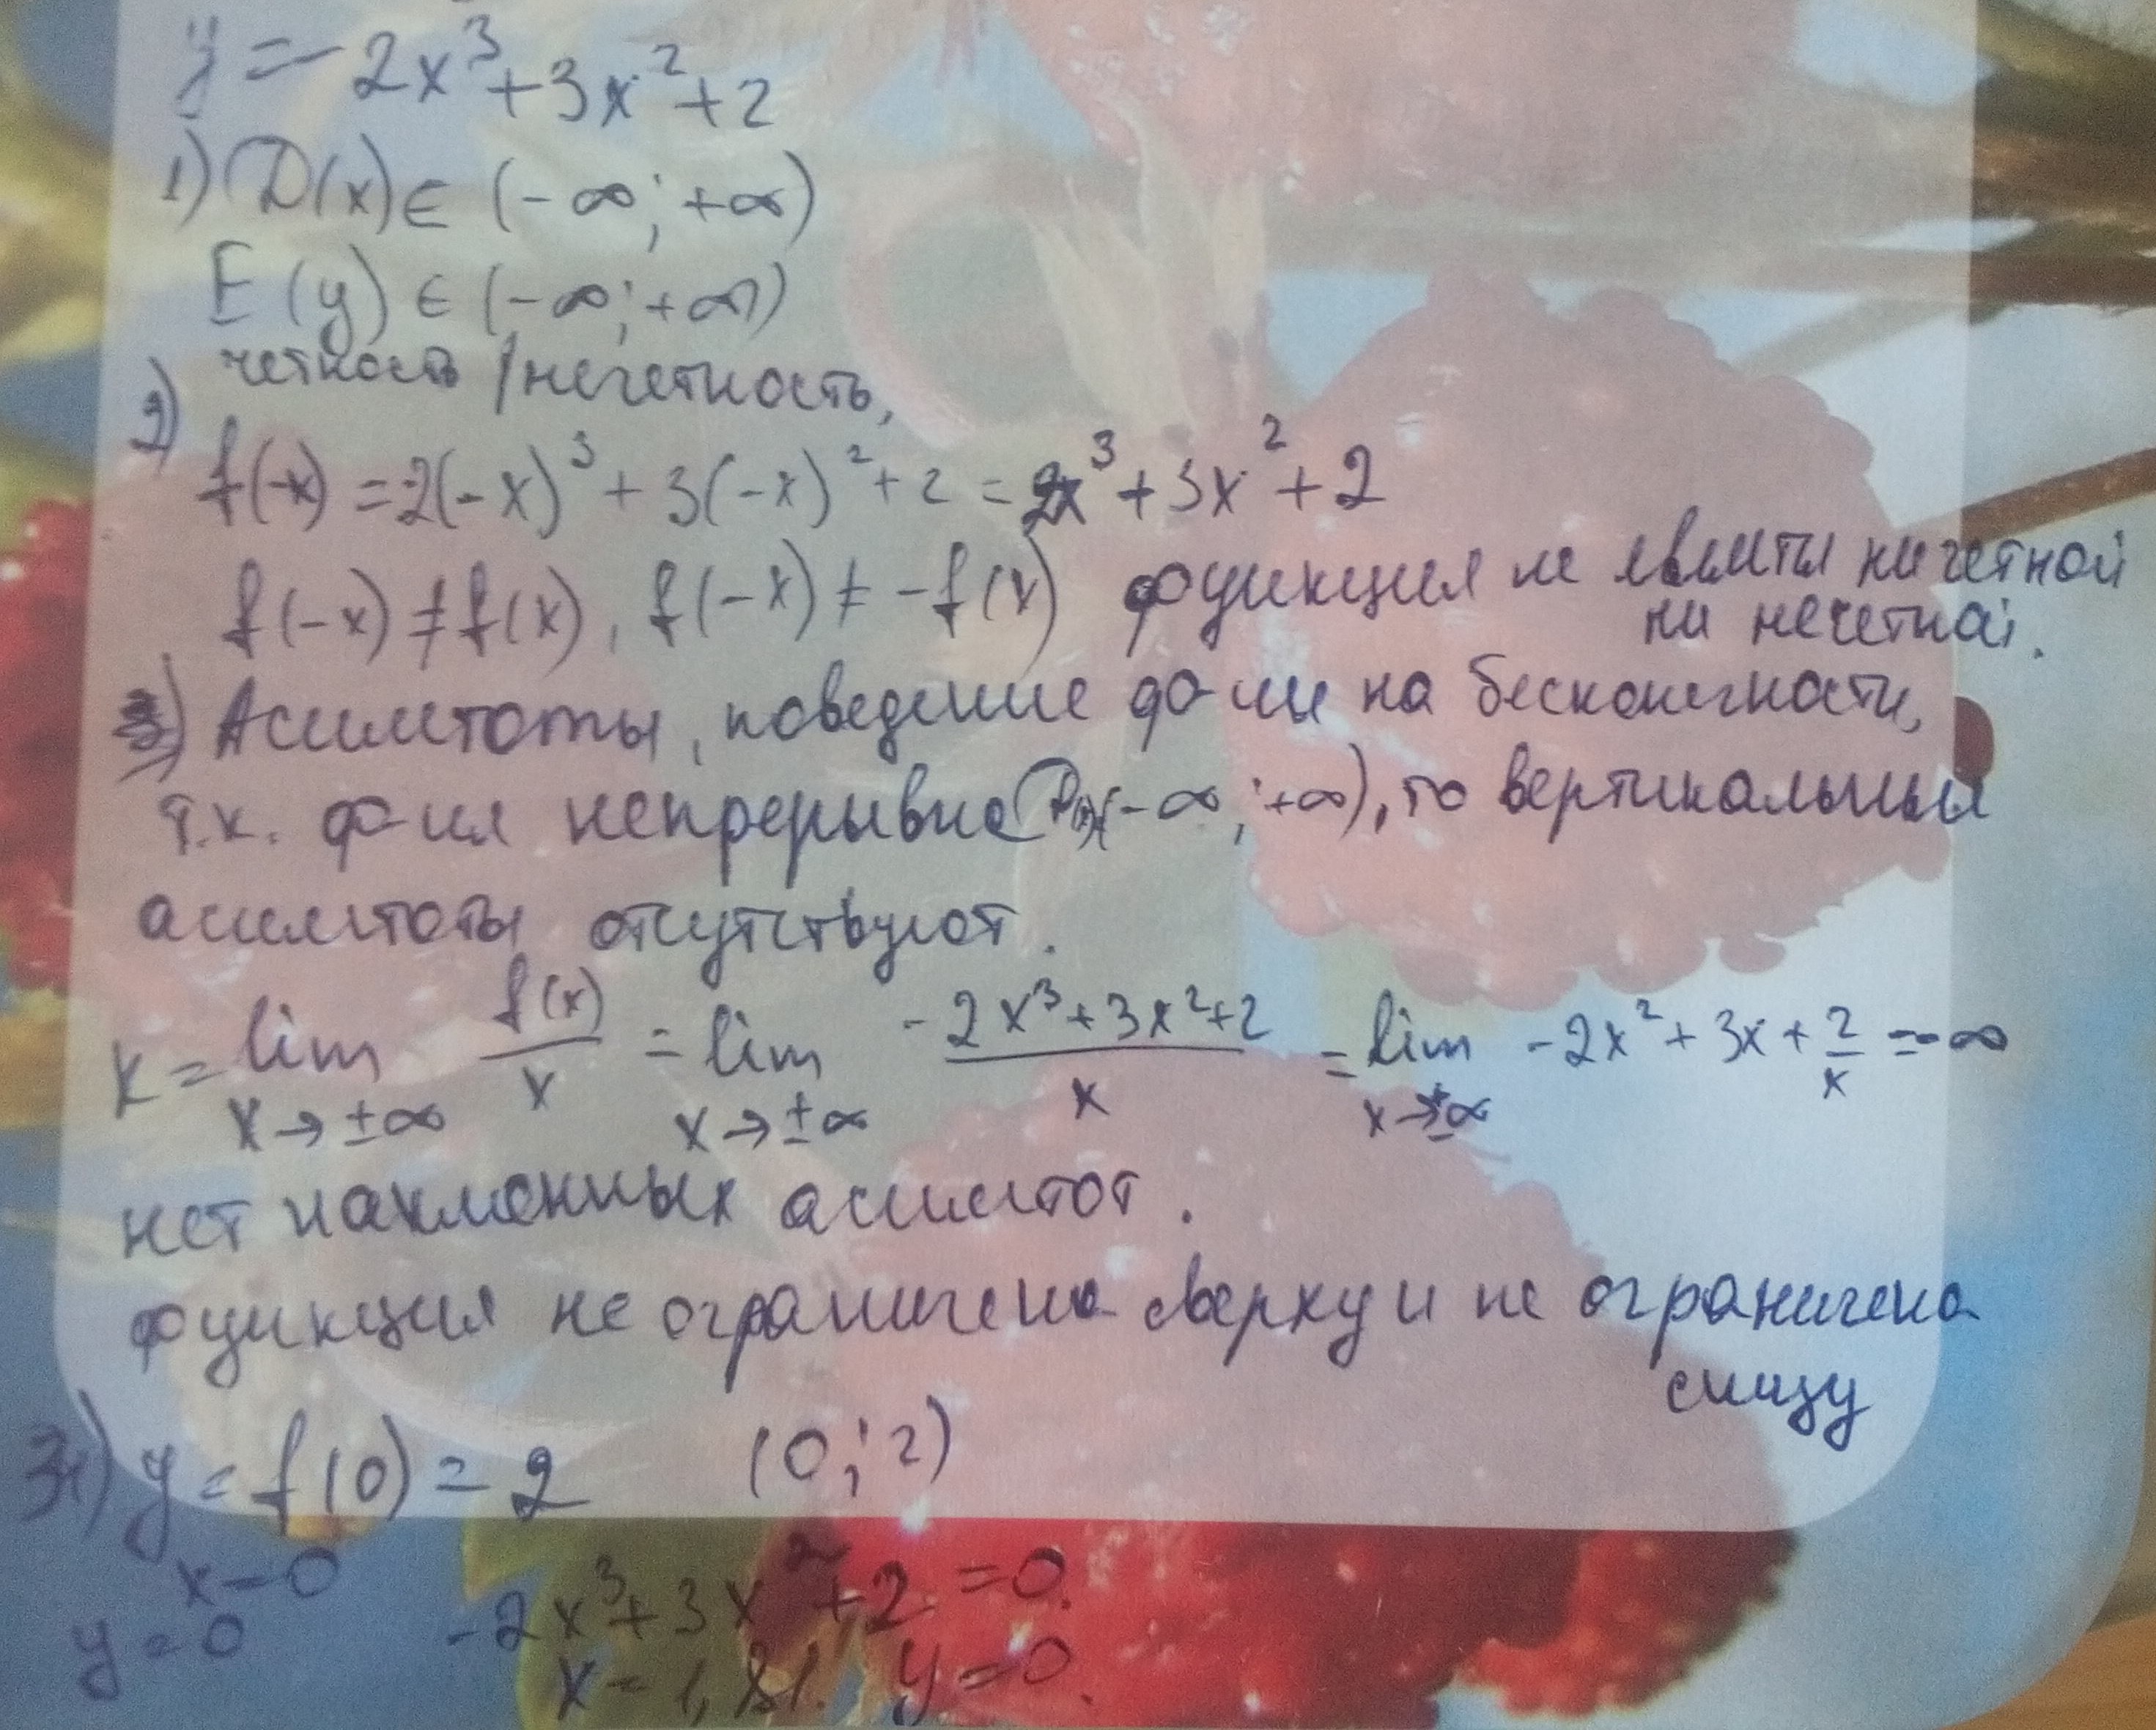 y = -2x³+3x²+2
1) D(x) ∈ (-∞; +∞)
E(y) ∈ (-∞; +∞)
2) четность / нечетность,
f(-x) = 2(-x)³ + 3(-x)² + 2 = 2x³ + 3x² + 2
f(-x) ≠ f(x), f(-x) ≠ -f(x) функция не является ни четной
ни нечетной.
3) Асимптоты, поведение ф-ции на бесконечности,
т.к. ф-ия непрерывна (-∞; +∞), то вертикальные
асимптоты отсутствуют.
K = lim x→±∞ f(x)/x = lim x→±∞ (-2x³+3x²+2)/x = lim x→±∞ -2x² + 3x + 2/x = -∞
нет наклонных асимптот.
функция не ограничена сверху и не ограничена
снизу
y = f(0) = 2 (0; 2)
x=0
y=0 -2x³+3x²+2=0.
x=1,81. y=0.